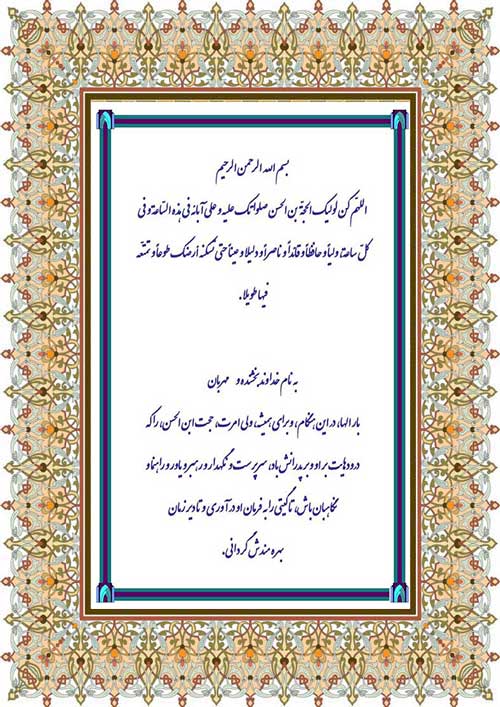 بسم الله الرحمن الرحیم
اللهم کن لولیک الحجة بن الحسن صلواتک علیه و علی آبائه فی هذه الساعة و فی
کلّ ساعة ولیاً و حافظاً و قائداً و ناصراً و دلیلا و عیناً حتی تسکنه أرضک طوعاً و تمتعه
فیها طویلا.
به نام خداوند بخشنده و مهربان
بار الها، در این هنگام، و برای همیشه، ولی امرت، حجت ابن الحسن، را که
درودهایت بر او و بر پدرانش باد، سرپرست و نگهدار و رهبر و یاور و راهنما و
نگاهبان باش، تا گیتی را به فرمان او در آوری و تا دیر زمان
بهره مندش گردانی.